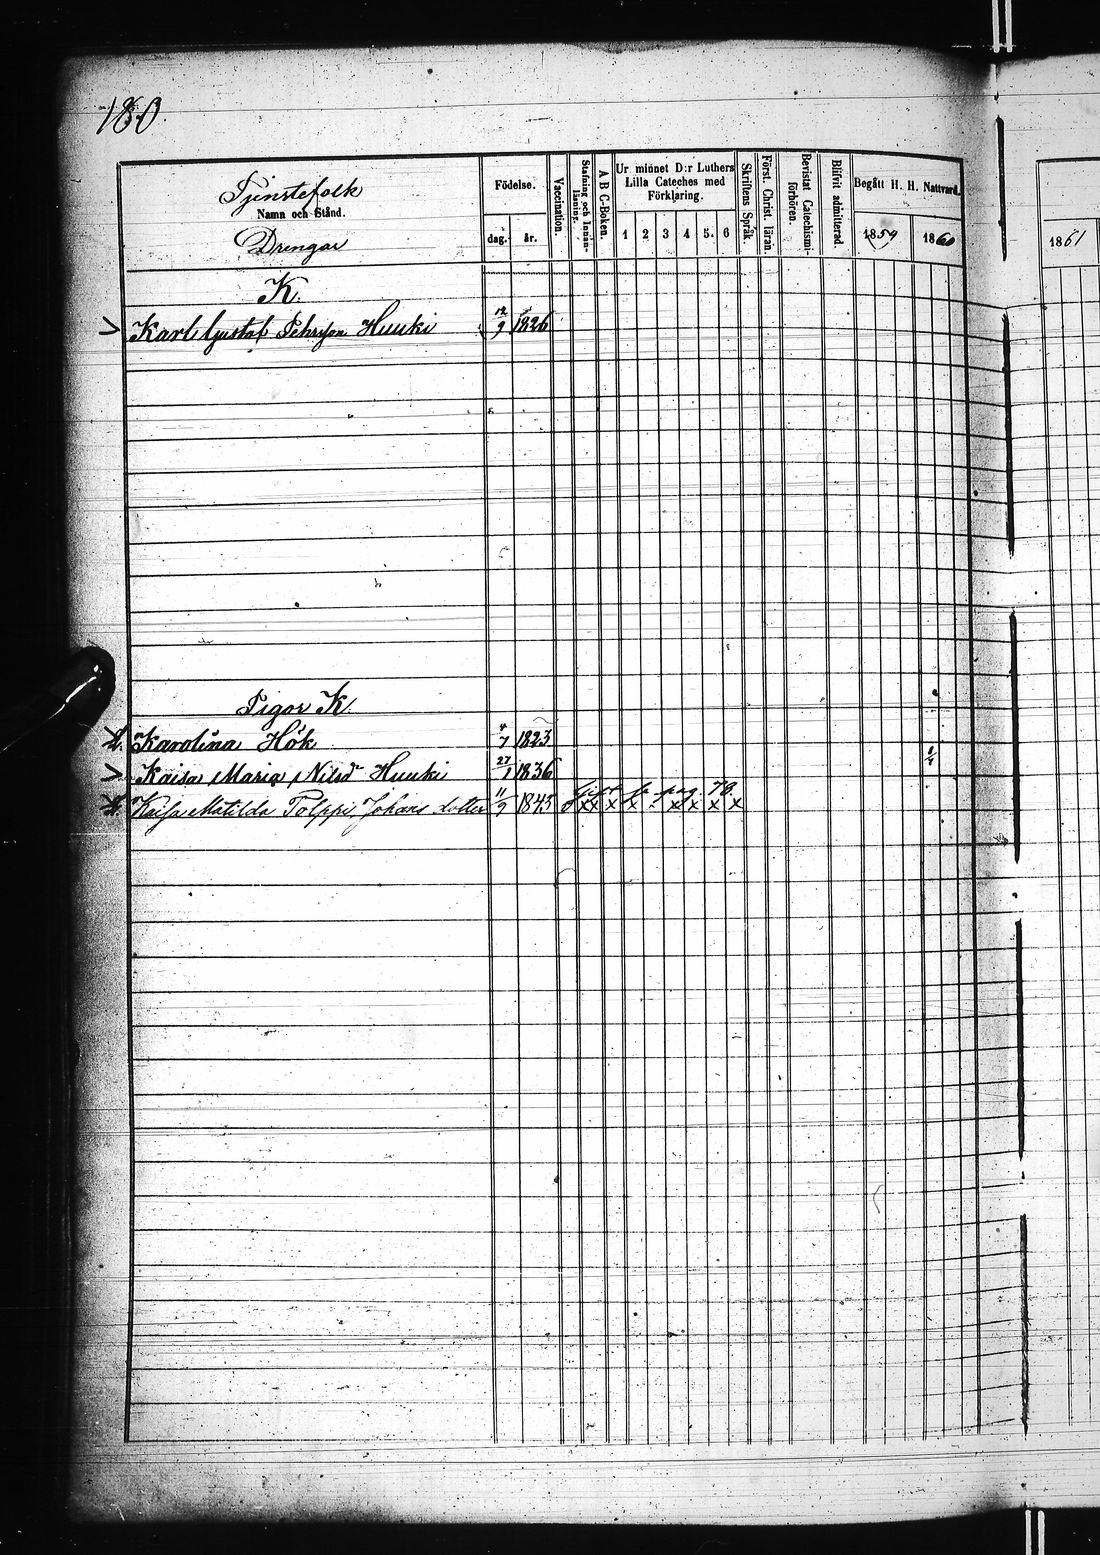 180
Tjenstefolk
Namn och Stånd.
Drengar
Födelse.
dag. år.
Vaccination.
Stafning och Innanläsning.
A B C-Boken.
Ur minnet D:r Luthers
Lilla Cateches med
Förklaring.
1 2 3 4 5. 6
Skriftens Språk.
Först. Christ läran.
Bevistat Catechismiförhören.
Blifvit admitterad.
Begått H. H. Nattvard.
1859 1860
1861
K.
Karl Gustaf Pehrsson Huuki 12/9 1826
Pigor K.
Karolina Hök 4/7 1823
Kaisa Maria Nilsd Huuki 27/1 1836
Gift pag. 70.
Kaisa Matilda Tolppi Johans dotter 11/9 1843 x x x x x x x x